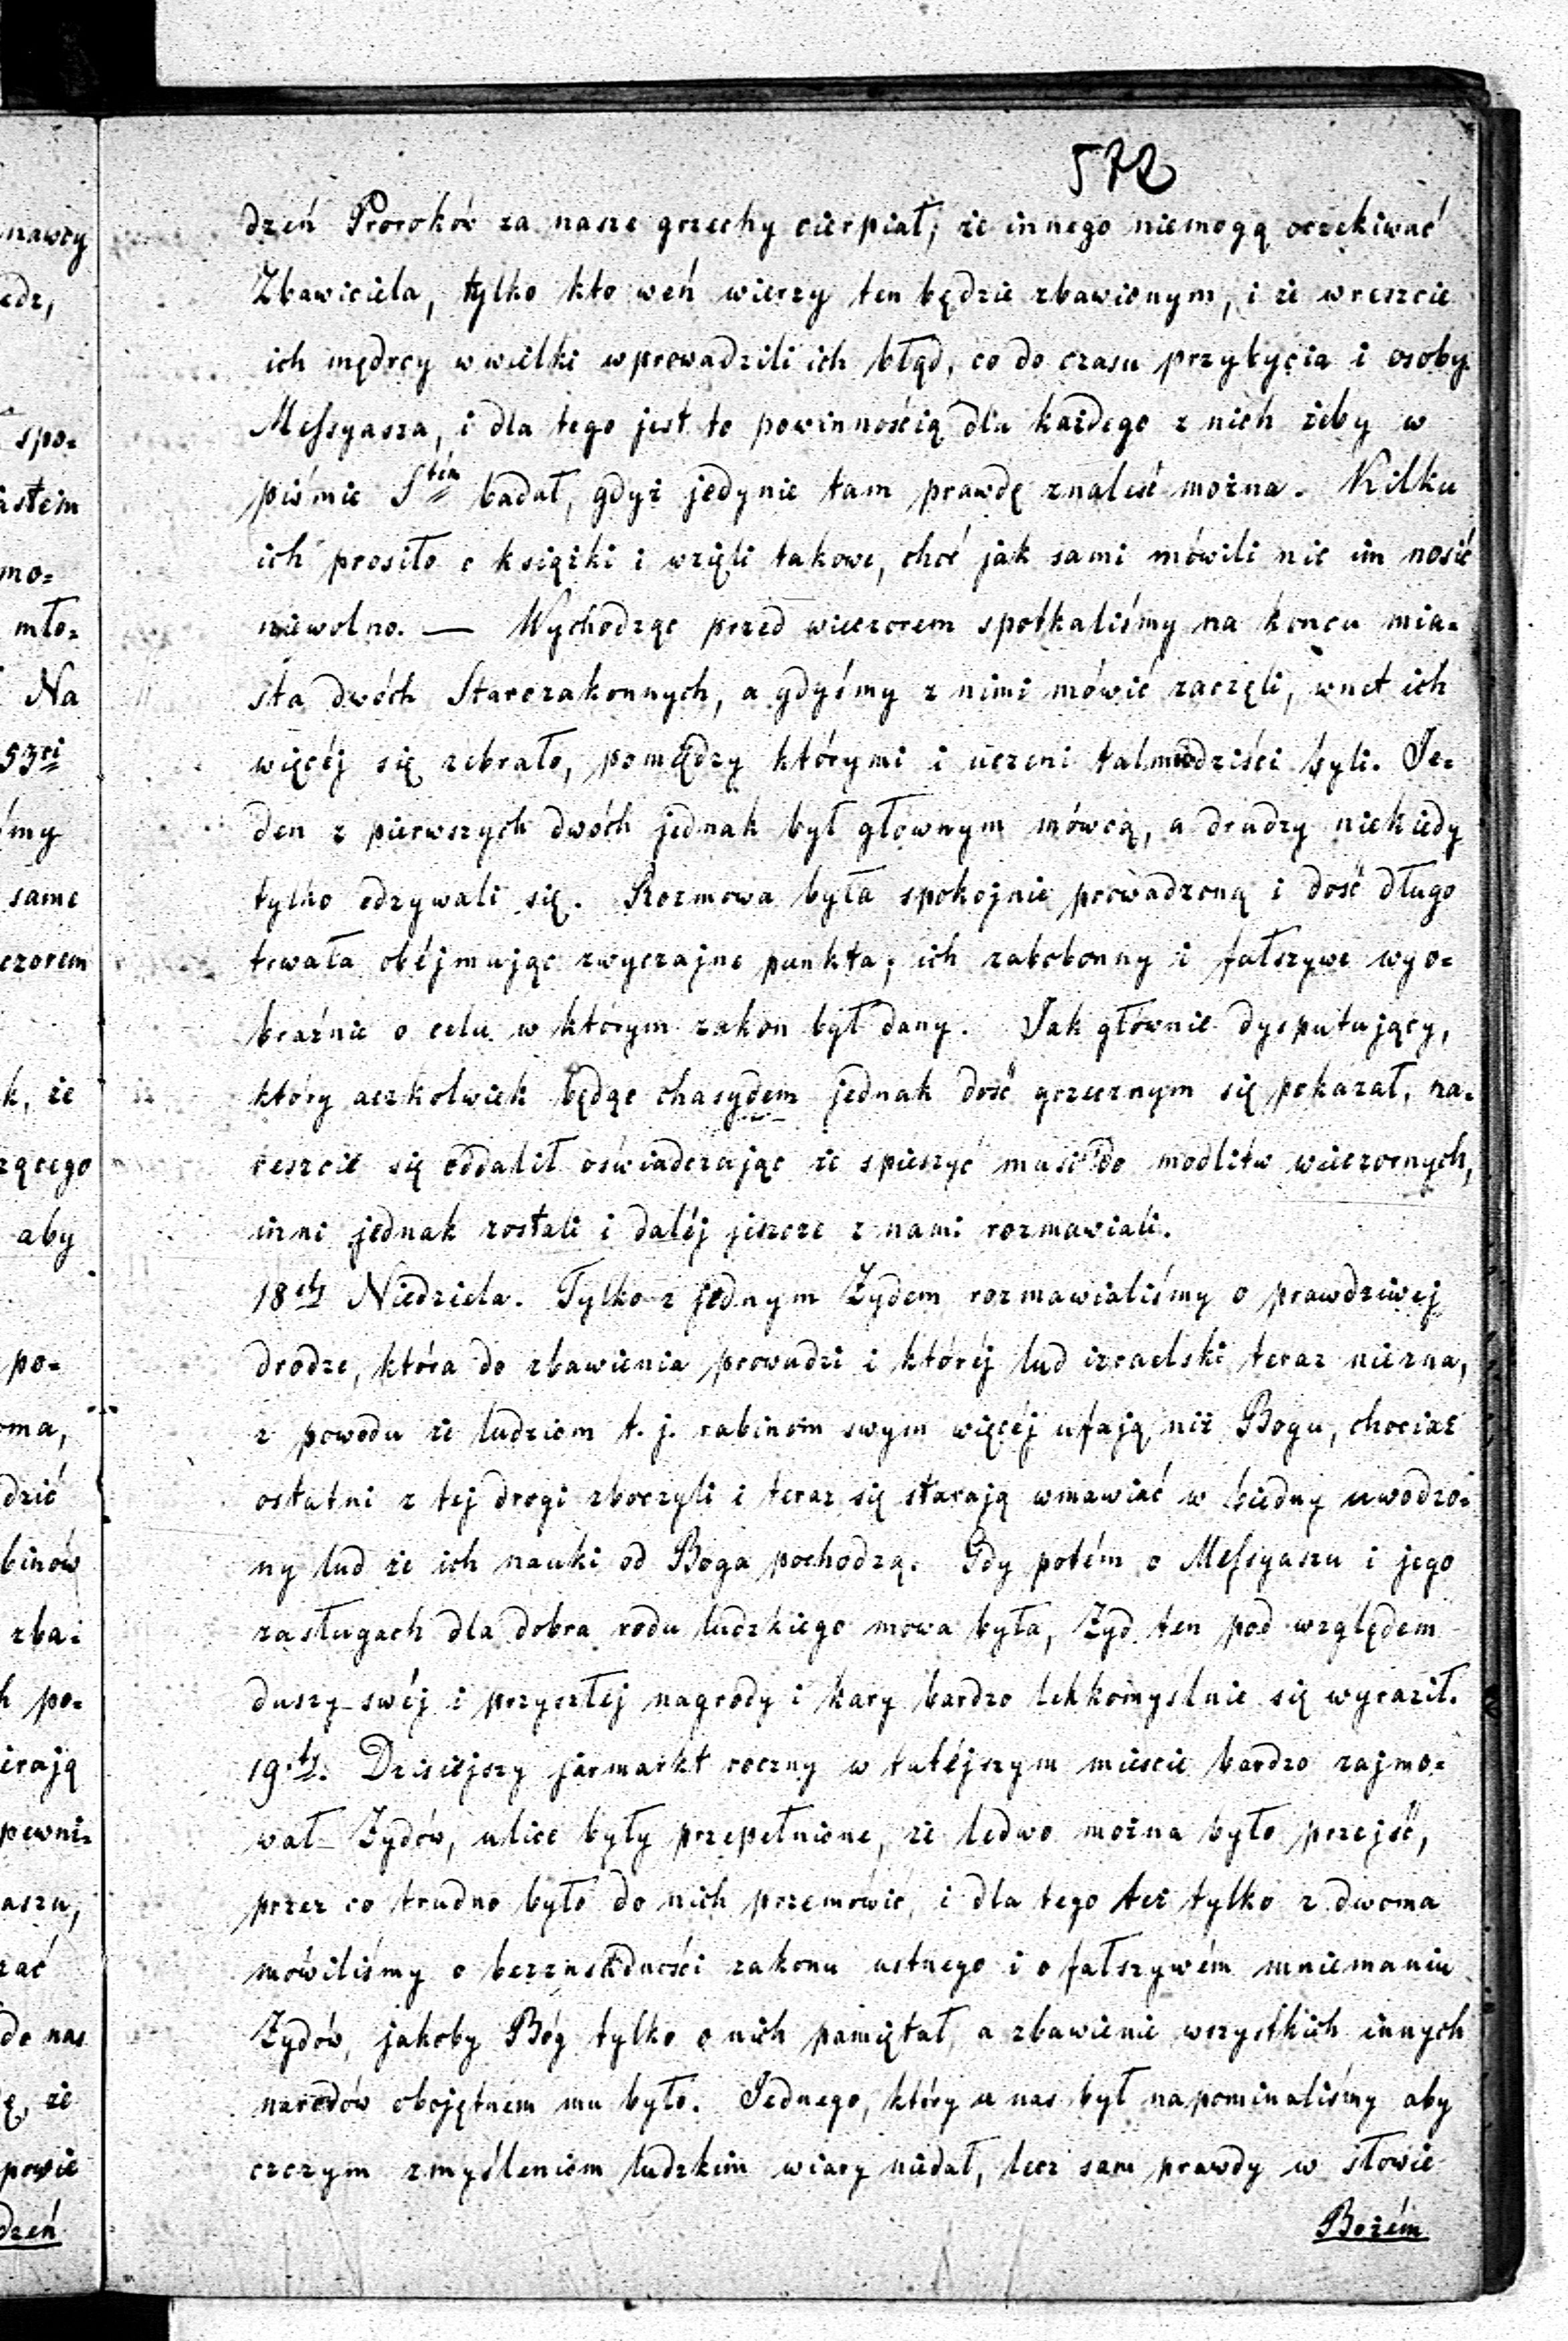 572
dzeń Proroków za nasze grzechy cierpiał; że innego niemogą oczekiwać
Zbawiciela, tylko kto weń wierzy ten będzie zbawionym, i że wreszcie
ich mędrcy w wielki wprowadzili ich błąd, co do czasu przybycia i osoby
Messyasza, i dla tego jest to powinnością dla każdego z nich żeby w
piśmie Stém badał, gdyż jedynie tam prawdę znaleść można. Kilku
ich prosiło o książki i wzięli takowe, choć jak sami mówili nic im nosić
niewolno. — Wychodząc przed wieczorem spotkaliśmy na końcu mia=
sta dwóch Starozakonnych, a gdyśmy z nimi mówić zaczęli, wnet ich
więcéj się zebrało, pomiędzy którymi i uczeni talmudziści byli. Je=
den z pierwszych dwóch jednak był głównym mówcą, a drudzy niekiedy
tylko odzywali się. Rozmowa była spokojnie prowadzoną i dość długo
trwała obéjmując zwyczajne punkta; ich zabobonny i fałszywe wyo=
braźnie o celu w którym zakon był dany. Jak głównie dysputujący,
który aczkolwiek będąc chasydem jednak dość grzecznym się pokazał, na=
reszcie się oddalił oświadczając że spieszyć musi do modlitw wieczornych,
inni jednak zostali i daléj jeszcze z nami rozmawiali.
18ty Niedziela. Tylko z jednym Żydem rozmawialiśmy o prawdziwej
drodze, która do zbawienia prowadzi i któréj lud izraelski teraz niezna,
z powodu że ludziom t. j. rabinom swym więcéj ufają niż Bogu, chociaż
ostatni z tej drogi zboczyli i teraz się starają wmawiać w biedny uwodzo=
ny lud że ich nauki od Boga pochodzą. Gdy potém o Messyaszu i jego
zasługach dla dobra rodu ludzkiego mowa była, Żyd ten pod względem
duszy swéj i przyszłej nagrody i kary bardzo lekkomyslnie się wyraził.
19ty. Dzisiejszy jarmarkt roczny w tutéjszym miescie bardzo zajmo=
wał Żydów, ulice były przepełnione, że ledwo można było przejść,
przez co trudno było do nich przemówić, i dla tego też tylko z dwoma
mówiliśmy o bezzasadności zakonu ustnego i o fałszywém mniemaniu
Żydów, jakoby Bóg tylko o nich pamiętał, a zbawienie wszystkich innych
narodów obojętném mu było. Jednego, który u nas był napominaliśmy aby
czczym zmyśleniom ludzkim wiary niedał, lecz sam prawdy w słowie
Bożém